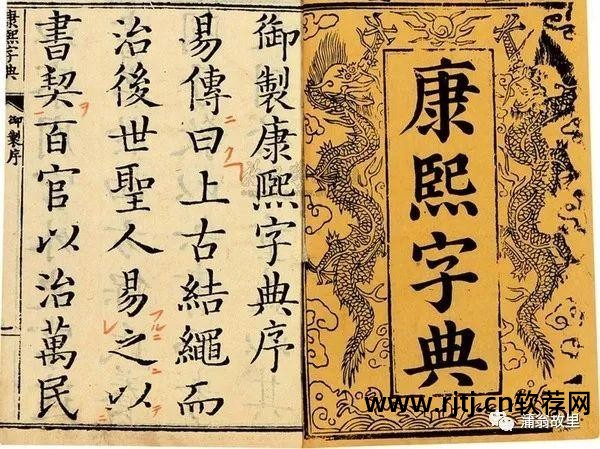 康熙字典
御製康熙字典序
易傳曰上古結繩而
治後世聖人易之以
書契百官以治萬民
康熙字典
御製序
ニ
ク
フルニ
ニ
テ
レ
ヲ
ニ
www.rjtj.cn软荐网
蒲翁故里